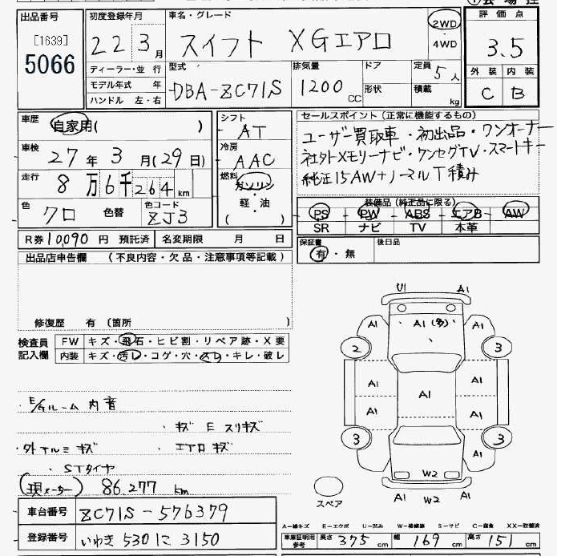 出品番号
[1639]
5066
初度登録年月
22年3月
ディーラー・並行
モデル年式 年
ハンドル 左・右
車名・グレード
スイフト XGエアロ
2WD
4WD
評価点
3.5
外装 内装
C B
型式
DBA-ZC71S
排気量
1200cc
ドア
形状
定員
5人
積載
kg
車歴
自家用( )
車検
27年3月(29日)
走行
8万6千264km
色
クロ
色替
色コード
ZJ3
シフト
AT
冷房
AAC
燃料
ガソリン
軽・油
( )
R券 10,090円 預託済
名変期限 月 日
セールスポイント(正常に機能するもの)
ユーザー買取車・初出品・ワンオーナー
社外メモリーナビ・ワンセグTV・スマートキー
純正15AW+ノーマルT積み
装備品(純正品に限る)
PS PW ABS エアB AW
SR ナビ TV 本革
保証書
有・無
後日品
出品店申告欄 (不良内容・欠品・注意事項等記載)
修復歴 有(箇所
検査員記入欄
FW キズ・飛石・ヒビ割・リペア跡・X要
内装 キズ・汚レ・コゲ・穴・スレ・キレ・破レ
・E/Gルーム内音
・キズ E スリキズ
・外アルミキズ
・エアロキズ
・STタイヤ
(現メーター) 86,277 km
車台番号
ZC71S-576379
登録番号
いわき 530 に 3150
U1 A1
A1 A1(多) A1
2 3
A1 A1 A1
A1 A1
3 3
A1 W2 A1
A1 W2 A1
スペア
車庫証明用参考
長さ 375cm
幅 169cm
高さ 151cm